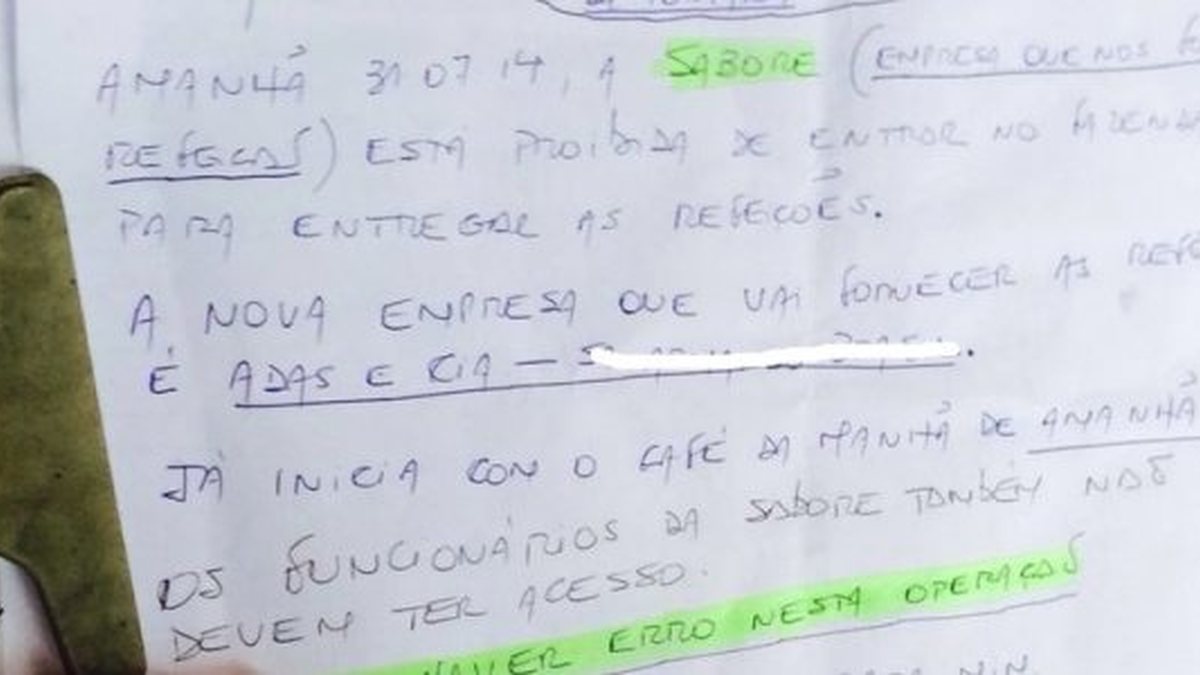 AMANHÃ 31 07 14, A SABORE (EMPRESA QUE NOS
REFEIÇÃO) ESTÁ PROIBIDA DE ENTRAR NO FAZENDA
PARA ENTREGAR AS REFEIÇÕES.
A NOVA EMPRESA QUE VAI FORNECER AS
É ADAS E CIA —
JÁ INICIA COM O CAFÉ DA MANHÃ DE AMANHÃ
OS FUNCIONÁRIOS DA SABORE TAMBÉM NÃO
DEVEM TER ACESSO.
ERRO NESTA OPERAÇÃO